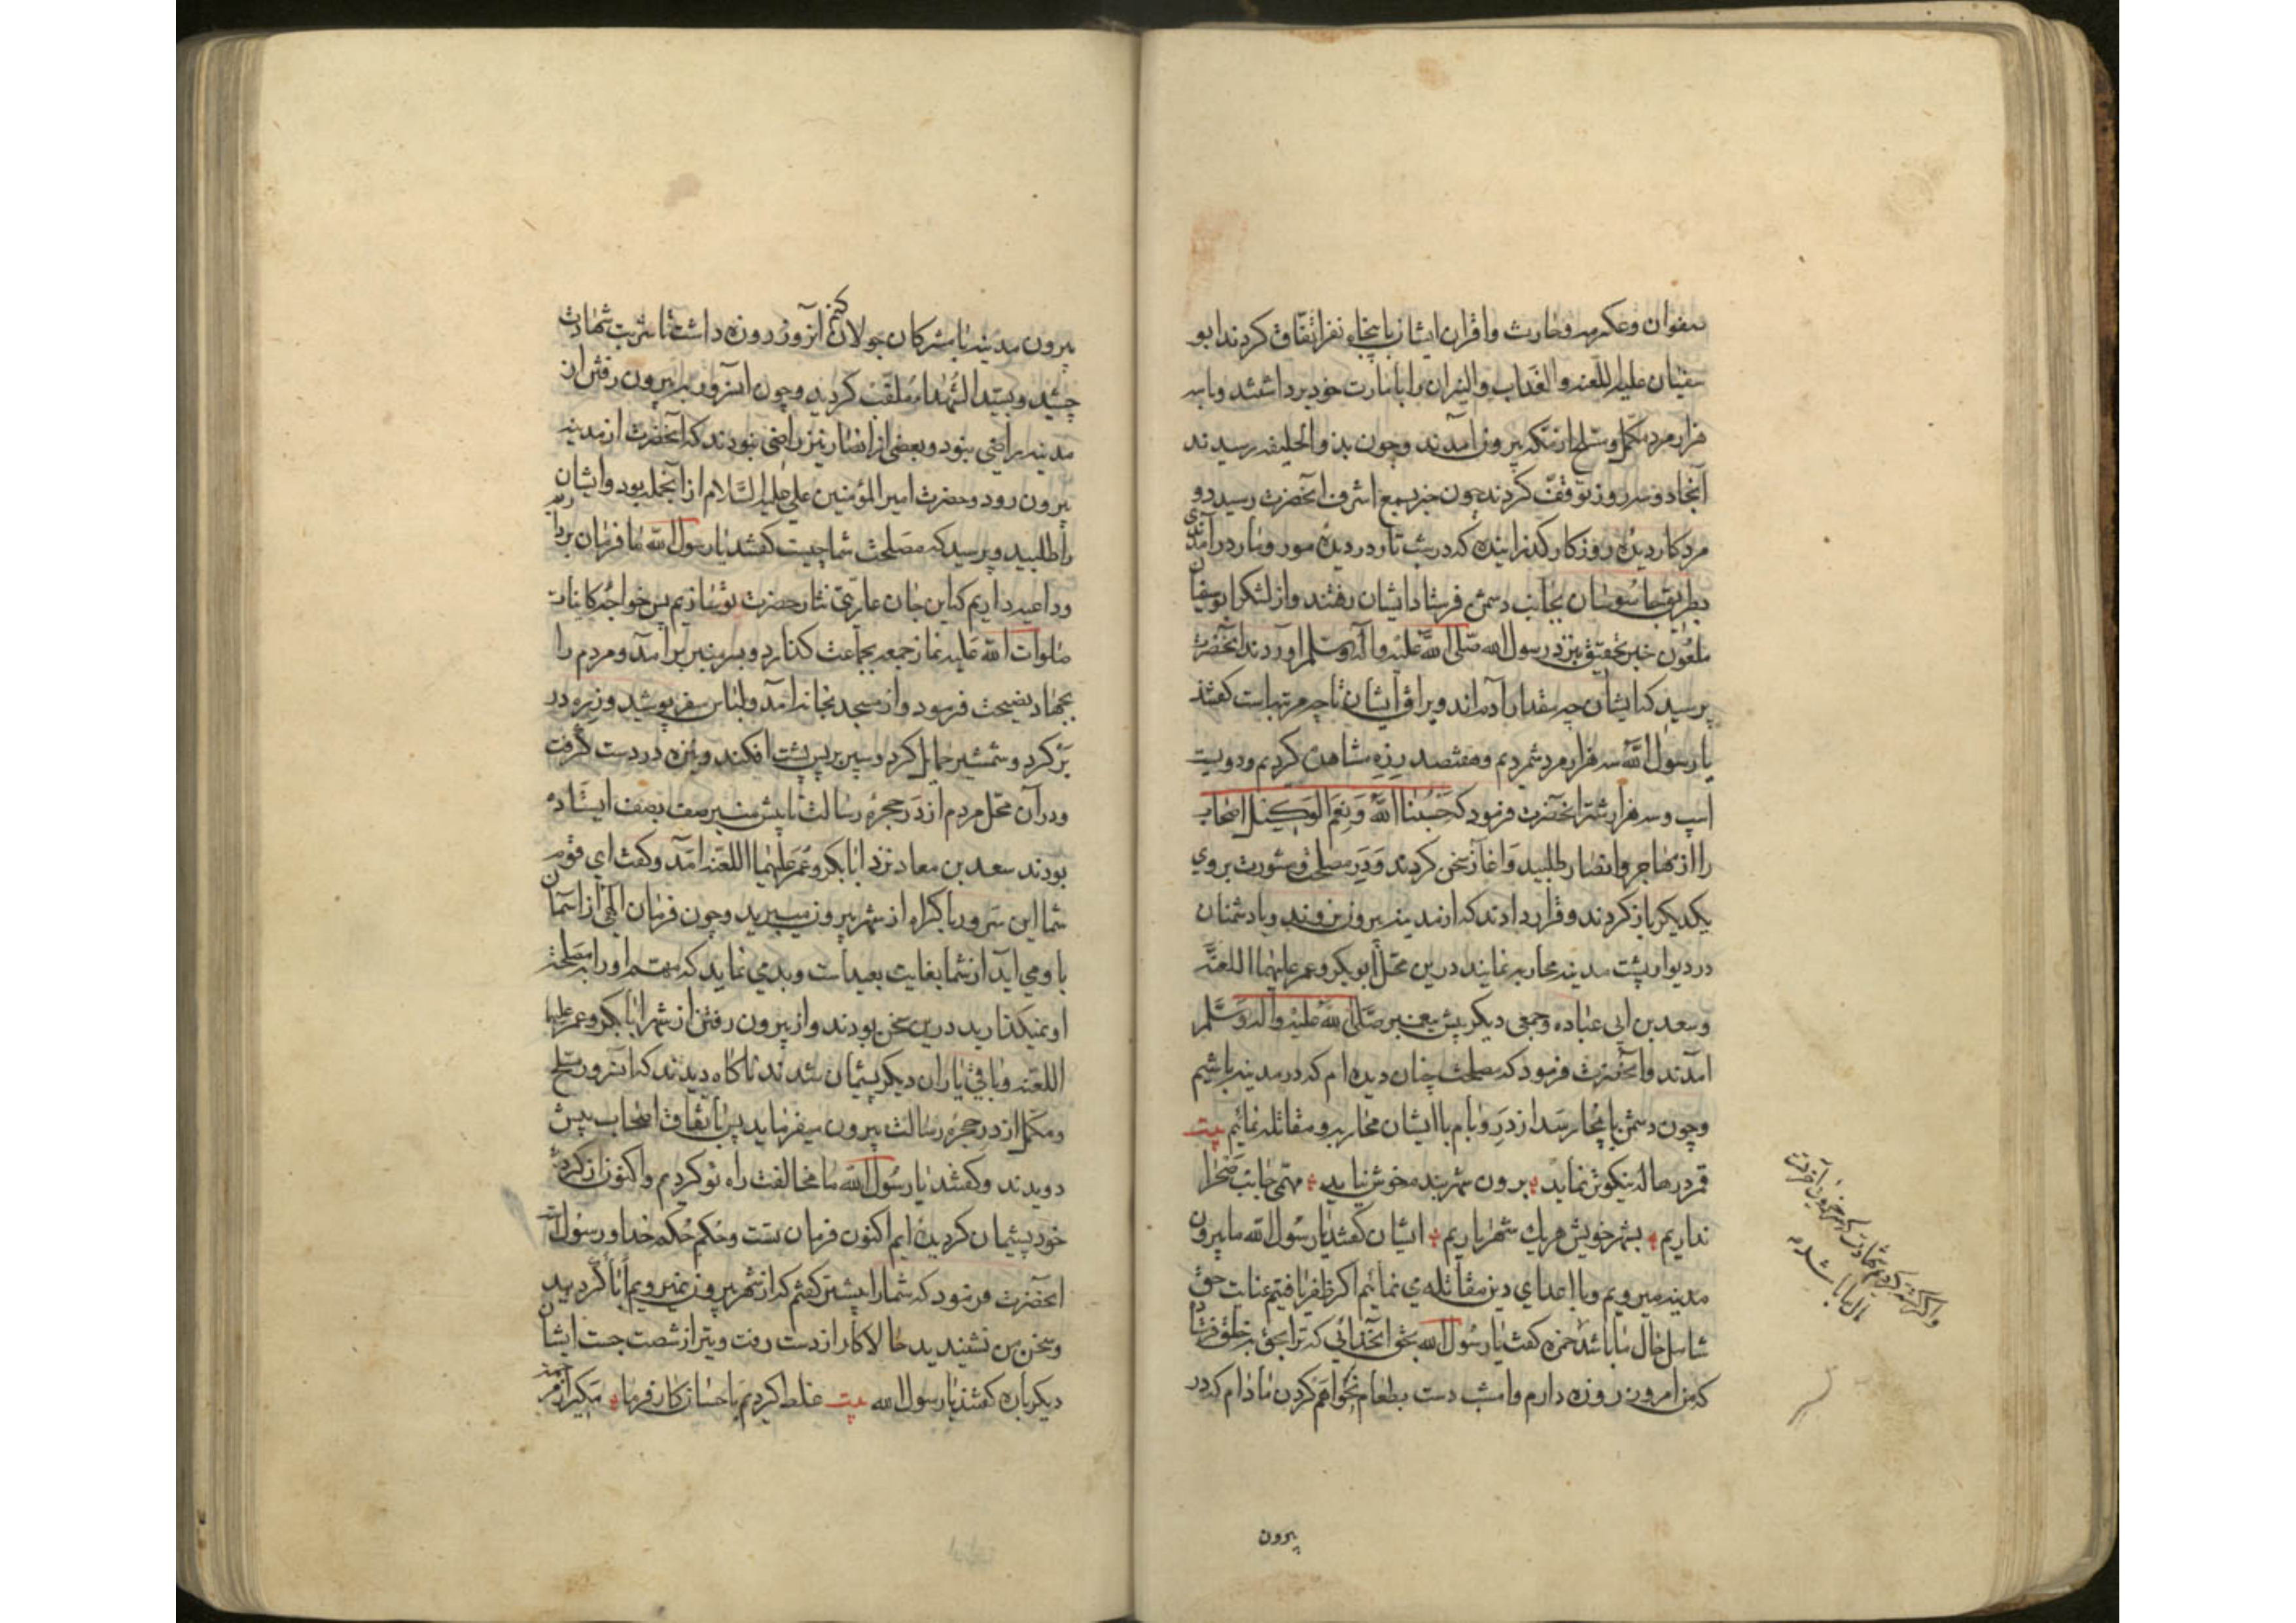 صفوان وعکرمه وحارث واقران ایشان با پنجاه نفر اتفاق کردند ابو
سفیان علیه اللعنه والعذاب والنیران را بامارت خود برداشتند وبا سه
هزار مرد مکمل ومسلح از مکه بیرون آمدند وچون بذو الحلیفه رسیدند
آنجا دو سه روز توقف کردند چون خبر بسمع اشرف آنحضرت رسید دو
مرد کار دیده روزکار کذرانیده که در شب تار در دیده مور ومار در آمدندی
بطریق جاسوسان بجانب دشمن فرستاد ایشان رفتند واز لشکر ابو سفیان
ملعون خبر تحقیق بنزد رسول الله صلی الله علیه وآله وسلم آوردند آنحضرت
پرسید که ایشان چه مقدار آدم اند ویراق ایشان تا چه مرتبه است کفتند
یا رسول الله سه هزار مرد شمردیم وهفتصد زره مشاهده کردیم ودویست
اسپ وسه هزار شتر آنحضرت فرمود که حَسْبُنَا اللهُ وَنِعْمَ الوَکِیلُ اصحاب
را از مهاجر وانصار طلبید واغاز سخن کردند ودر مصلحت ومشورت بروی
یکدیکر باز کردند وقرار دادند که از مدینه بیرون نروند وبا دشمنان
در دیوار پشت مدینه محاربه نمایند درین محل ابو بکر وعمر علیهما اللعنة
وسعد بن ابی عباده وجمعی دیکر پیش پیغمبر صلی الله علیه وآله وسلم
آمدند وآنحضرت فرمود که مصلحت چنان دیده ام که در مدینه باشیم
وچون دشمن باینجا رسد از در وبام با ایشان محاربه ومقاتله نمائیم بیت
قمر در هاله نیکوش نماید برون شهر بنده خوش نیاید مهمی جانب صحرا
نداریم بشهر خویش هر یک شهریاریم ایشان کفتند یا رسول الله ما بیرون
مدینه میرویم وبا اعدای دین مقاتله می نمائیم اکر ظفر یافتیم عنایت حق
شامل حال ما باشد حمزه کفت یا رسول الله بحق آنخدائی که ترا بحق بخلق فرستاد
که من امروز روزه دارم وامشب دست بطعام نخواهم کردن مادام که در
بیرون
واکر کشته کردیم شهادت
ازان ما باشد
بیرون مدینه با مشرکان جولان کنم آنروز روزه داشت تا شربت شهادت
چشید وبسید الشهداء ملقب کردید وچون آنسرور به بیرون رفتن از
مدینه راضی نبود وبعضی از انصار نیز راضی نبودند که آنحضرت از مدینه
بیرون رود وحضرت امیر المؤمنین علی علیه السلام از آنجمله بود وایشان
را طلبید وپرسید که مصلحت شما چیست کفتند یا رسول الله ما فرمان برداریم
وداعیه داریم که این جان عاریتی نثار حضرت تو سازیم پس خواجه کاینات
صلوات الله علیه نماز جمعه بجماعت کذارد وبر منبر بر آمد ومردم را
بجهاد نصیحت فرمود واز مسجد بخانه آمد ولباس سفر پوشید وزره در
بر کرد وشمشیر حمایل کرد وسپر بر پس پشت افکند ونیزه در دست کرفت
ودر آن محل مردم از در حجره رسالت تا پیش منبر صف بصف ایستاده
بودند سعد بن معاذ نزد ابا بکر وعمر علیهما اللعنه آمد وکفت ای قوم
شما این سرور باکراه از شهر بیرون میبرید وچون فرمان الهی از اسمان
باو می آید از شما بغایت بعید است وبد می نماید که مهم او را بمصلحت
او نمیکذارید درین سخن بودند واز بیرون رفتن از شهر ابا بکر وعمر علیهما
اللعنه وباقی یاران دیکر پشیمان شدند ناکاه دیدند که آنسرور مسلح
ومکمل از در حجره رسالت بیرون میفرماید پس باتفاق اصحاب پیش
دویدند وکفتند یا رسول الله ما مخالفت راه تو کردیم واکنون از کرده
خود پشیمان کردیده ایم اکنون فرمان تست وحکم حکم خدا ورسول است
آنحضرت فرمود که شما را پیشتر کفتم که از شهر بیرون نمیرویم ابا کردید
وسخن من نشنیدید حالا کار از دست رفت وتیر از شصت جست ایشان
دیکرباره کفتند یا رسول الله بیت غلط کردیم باحسان کار فرما